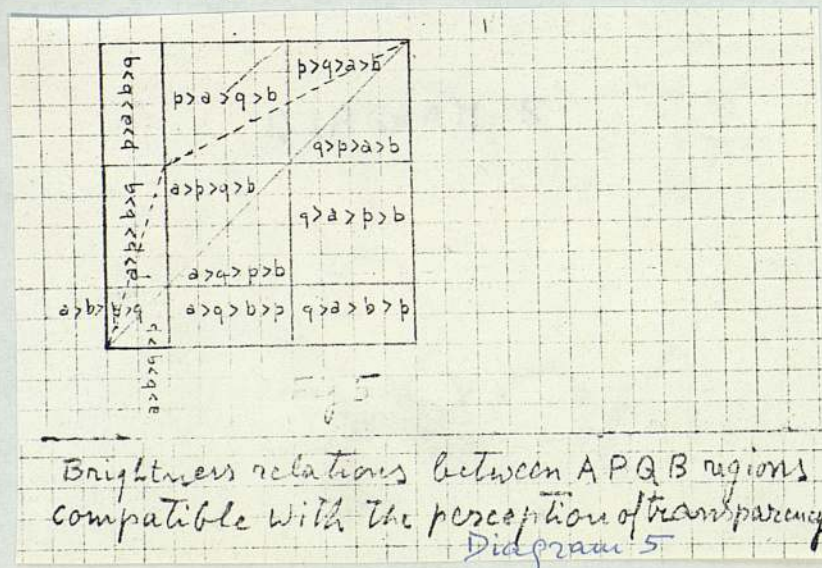 p>a>b>q
p>a>q>b
p>q>a>b
q>p>a>b
a>p>b>q
a>p>q>b
q>a>p>b
a>q>p>b
a>q>b>p
q>a>b>p
Fig 5
Brightness relations between A P Q B regions
compatible with the perception of transparency
Diagram 5